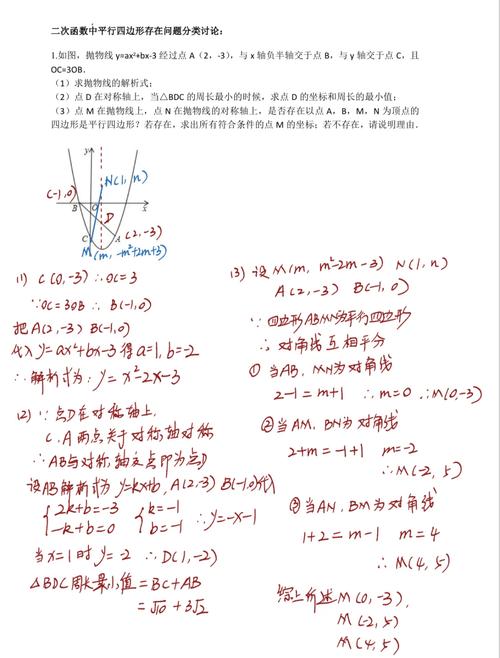 二次函数中平行四边形存在问题分类讨论:
1.如图，抛物线y=ax²+bx-3 经过点 A（2，-3），与 x 轴负半轴交于点 B，与 y 轴交于点 C，且
OC=3OB.
（1）求抛物线的解析式；
（2）点 D 在对称轴上，当△BDC 的周长最小的时候，求点 D 的坐标和周长的最小值；
（3）点 M 在抛物线上，点 N 在抛物线的对称轴上，是否存在以点 A，B，M，N 为顶点的
四边形是平行四边形？若存在，求出所有符合条件的点 M 的坐标；若不存在，请说明理由.
y
N(1, n)
(-1,0)
B
O
x
D
C
A
(2,-3)
M(m, -m²+2m+3)
(1) C(0,-3) ∴OC=3
∵OC=3OB ∴ B(-1,0)
把A(2,-3) B(-1,0)
代入 y=ax²+bx-3 得 a=1, b=-2
∴解析式为: y=x²-2x-3
(2) ∵点D在对称轴上,
C、A两点关于对称轴对称
∴AB与对称轴交点即为点D
设AB解析式为 y=kx+b, A(2,-3) B(-1,0)代入
{2k+b=-3 {k=-1
{-k+b=0 {b=-1 ∴y=-x-1
当x=1时 y=-2 ∴D(1,-2)
△BDC周长最小值=BC+AB
=√10+3√2
(3) 设M(m, m²-2m-3) N(1,n)
A(2,-3) B(-1,0)
∵四边形ABMN为平行四边形
∴对角线互相平分
① 当AB, MN为对角线
2-1=m+1 ∴m=0 ∴M(0,-3)
②当AM, BN为对角线
2+m=-1+1 m=-2
∴M(-2,5)
③当AN, BM为对角线
1+2=m-1 m=4
∴M(4,5)
综上所述 M(0,-3),
M(-2,5)
M(4,5)